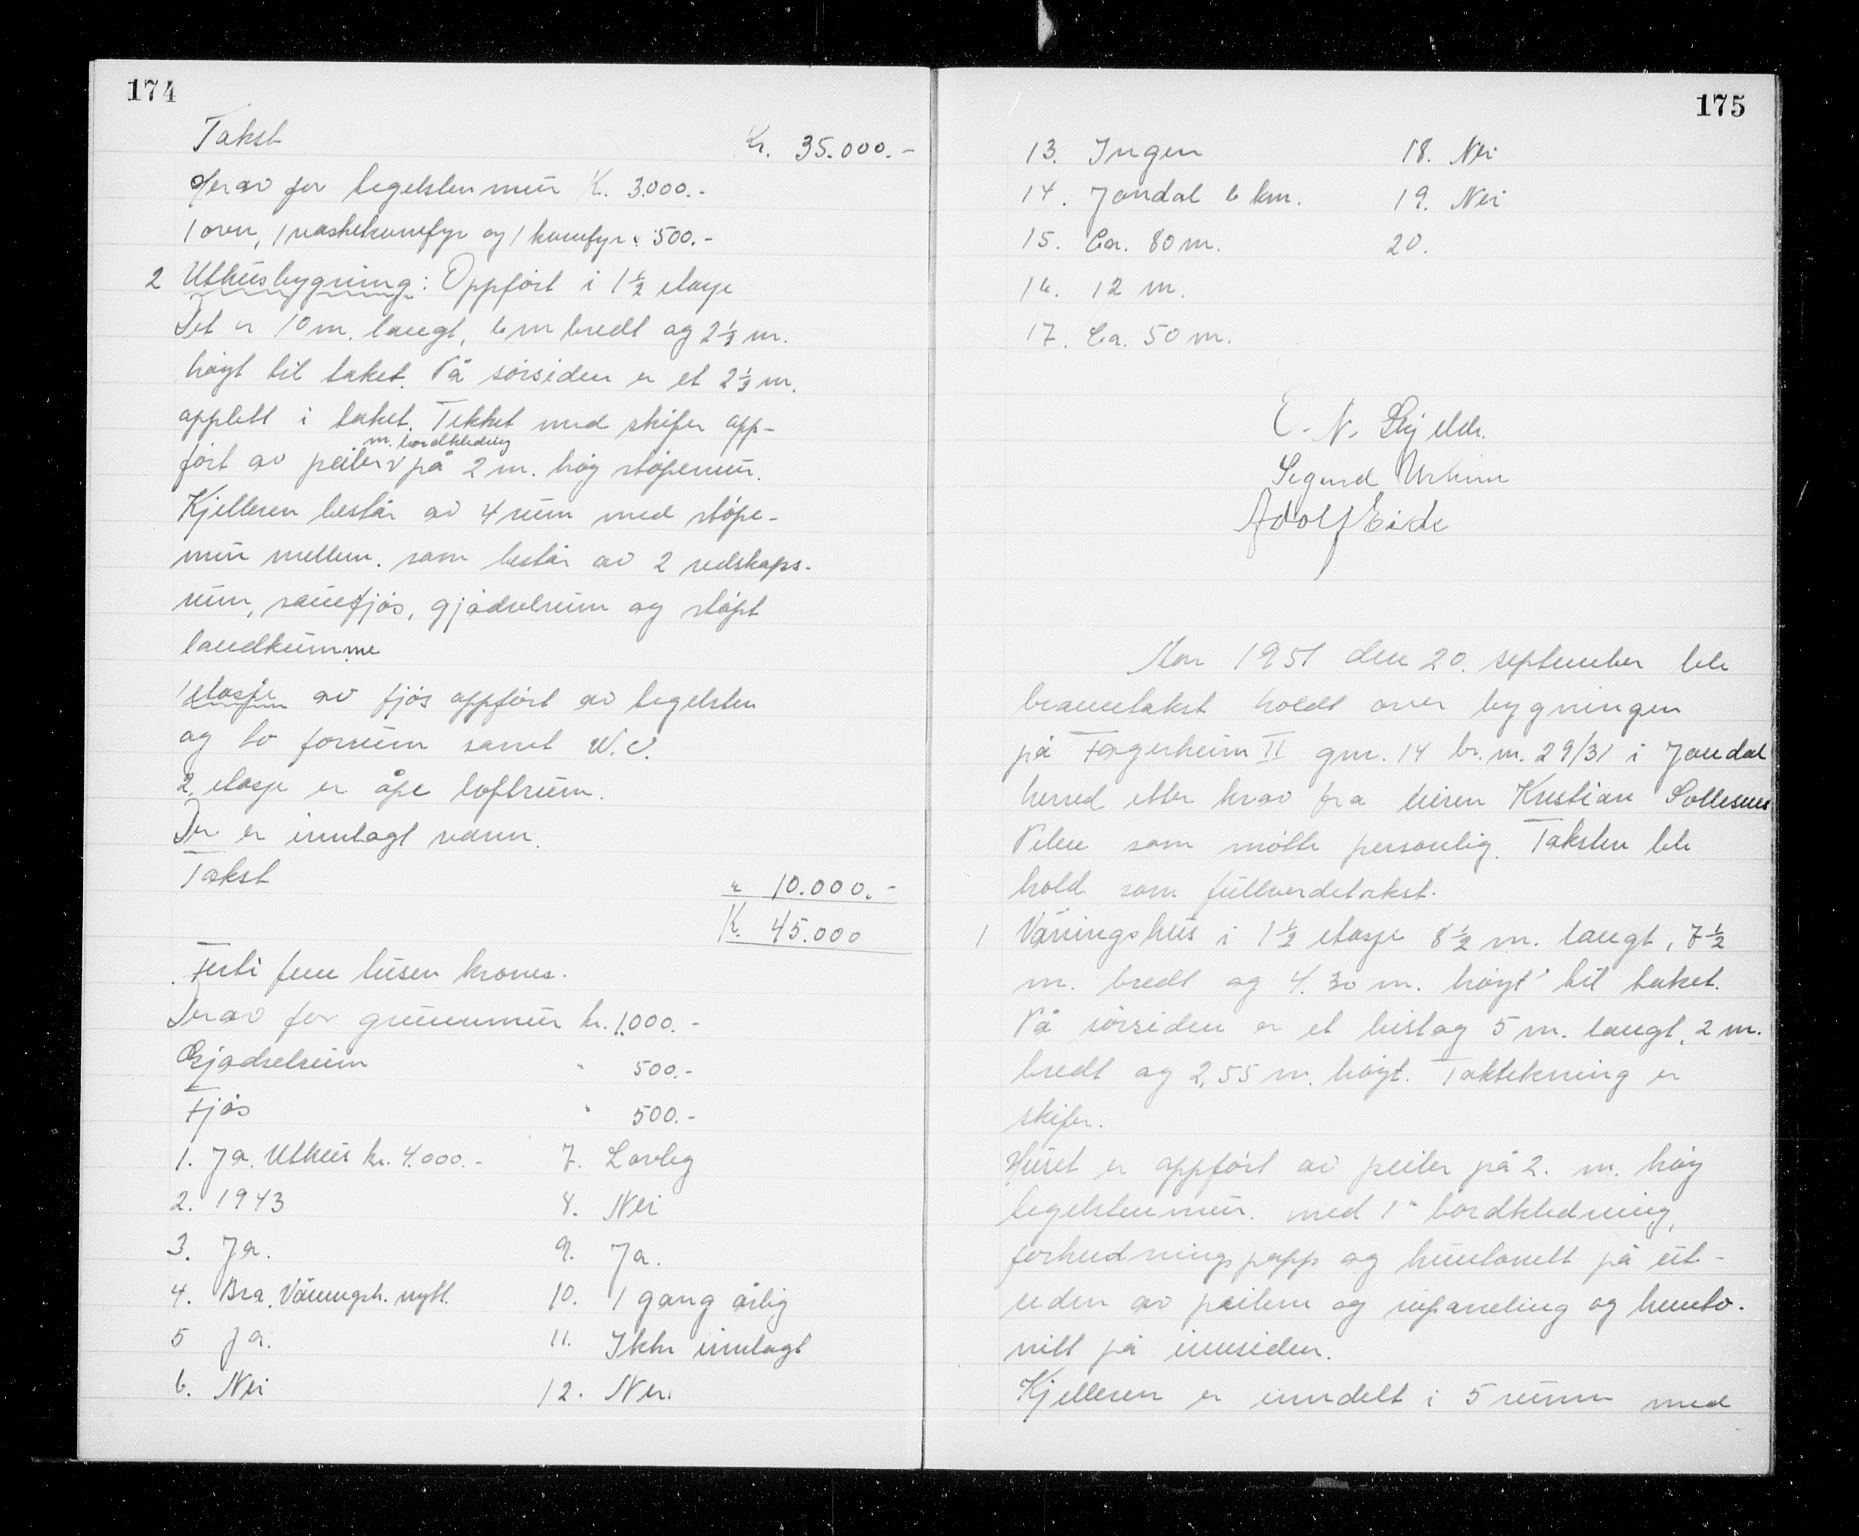 174
Takst Kr. 35.000.-
Herav for tegelstenmur K. 3.000.-
1 ovn, 1 vaskekomfyr og 1 komfyr " 500.-
2 Uthusbygning: Oppført i 1½ etasje
Det er 10 m. langt, 6 m bredt og 2⅓ m.
høgt til taket. På sørsiden er et 2⅓ m.
opplett i taket. Tekket med skifer opp-
m. bordkledning
ført av peiler på 2 m. høg støpemur.
Kjelleren består av 4 rum med støpe-
mur mellem. som består av 2 redskaps-
rum, sauefjøs, gjødselrum og støpt
landkumme
1 etasje av fjøs oppført av tegelsten
og to forrum samt W.C.
2. etasje er åpe loftrum.
Der er innlagt vann.
Takst " 10.000.-
K. 45.000
Førti fem tusen kroner.
Derav for grunnmur kr. 1.000.-
Gjødselrum " 500.-
Fjøs " 500.-
1. Ja. Uthus kr. 4.000.- 7. Lovleg
2. 1943 8. Nei
3. Ja. 9. Ja.
4. Bra. Våningsh. nytt. 10. 1 gang årlig
5 Ja. 11. Ikke innlagt
6. Nei 12. Nei.
175
13. Ingen 18. Nei
14. Jondal 6 km. 19. Nei
15. Ca. 80 m. 20.
16. 12 m.
17. Ca. 50 m.
E. N. Skjelde.
Sigurd Urheim
Adolf Eide
Aar 1951 den 20. september ble
brannetakst holdt over bygningen
på Fagerheim II gnr. 14 br. nr. 29/31 i Jondal
herred etter krav fra eieren Kristian Sollesnes
Velen som møtte personlig. Taksten ble
hold som fullverdetakst.
1 Våningshus i 1½ etasje 8½ m. langt, 7½
m. bredt og 4.30 m. høgt til taket.
På sørsiden er et bislag 5 m. langt, 2 m.
bredt og 2,55 m. høgt. Taktekning er
skifer.
Huset er oppført av peiler på 2. m. høg
tegelstenmur. med 1" bordkledning,
forhudningspapp og huntonitt på ut-
siden av peilene og rupaneling og hunto-
nitt på innsiden.
Kjelleren er inndelt i 5 rumm med